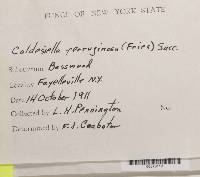 FUNGI OF NEW YORK STATE
Caldesiella ferruginosa (Fries) Sacc.
Substratum Basswood
Locality Fayetteville N.Y.
Date 14 October 1911
Collected by L. H. Pennington No.
Determined by